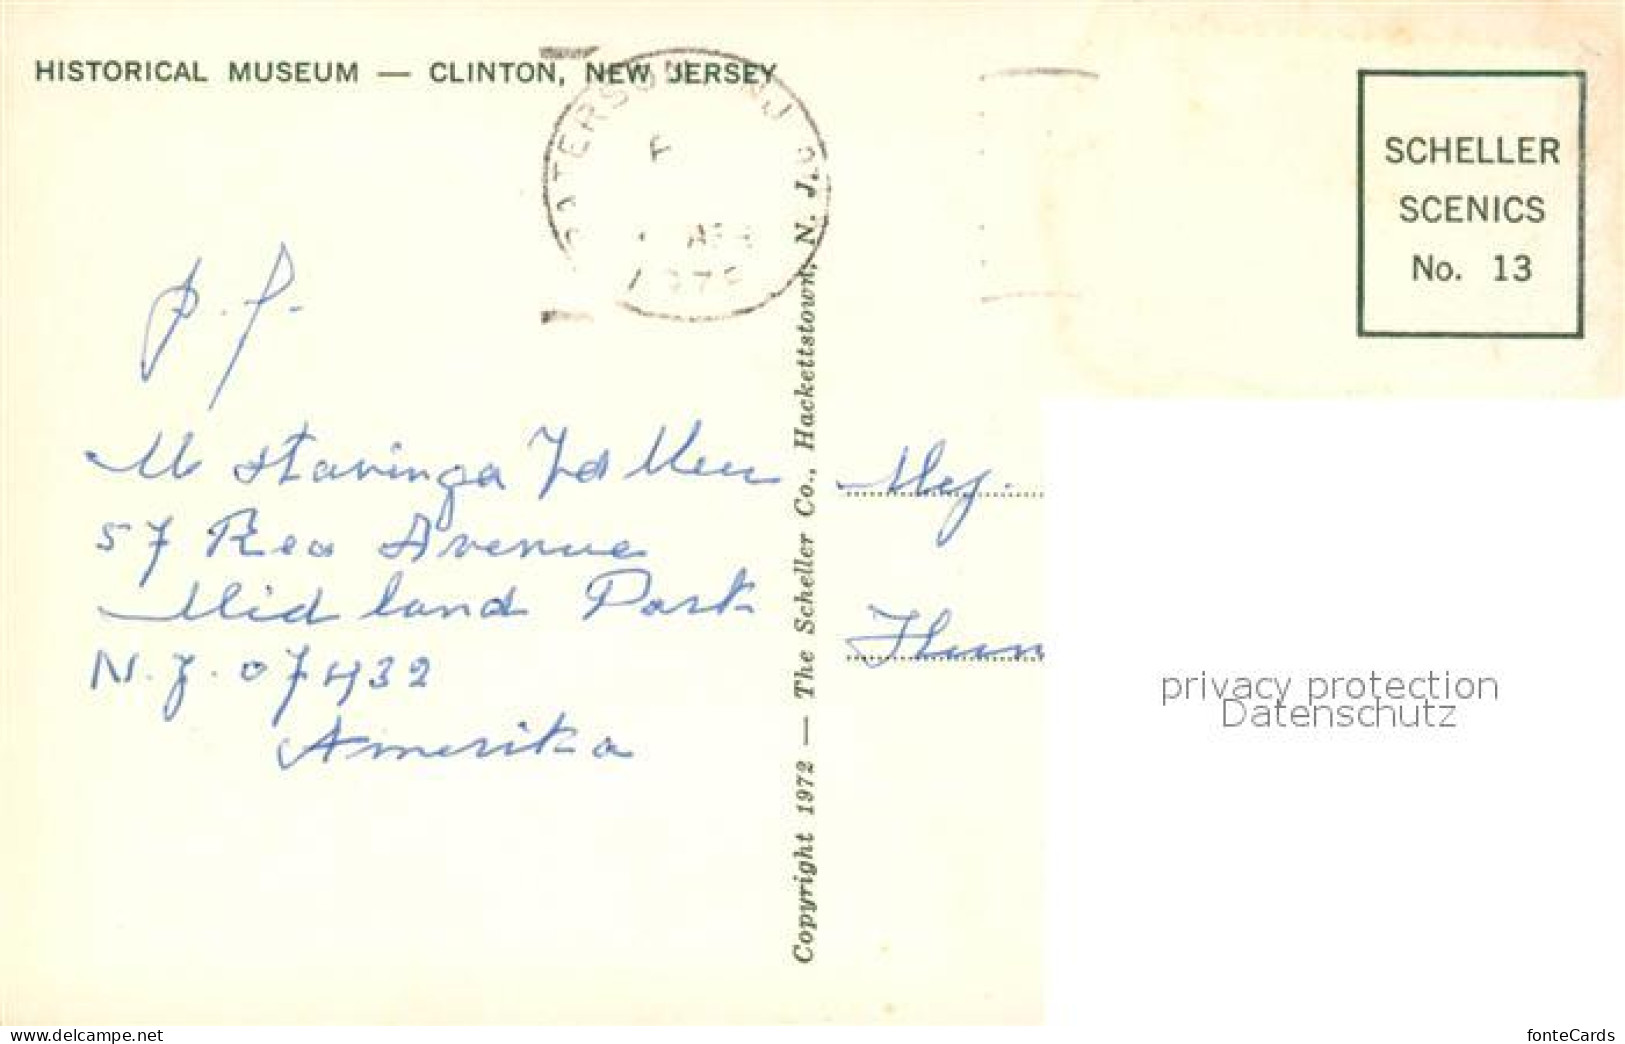 HISTORICAL MUSEUM — CLINTON, NEW JERSEY
PATERSON NJ
1975
SCHELLER
SCENICS
No. 13
p.f.
M Stavinga
57 Rea Avenue
Midland Park
N.J. 07432
Amerika
Copyright 1972 — The Scheller Co., Hackettstown, N. J.
Mej.
privacy protection
Datenschutz
www.delcampe.net
fonteCards